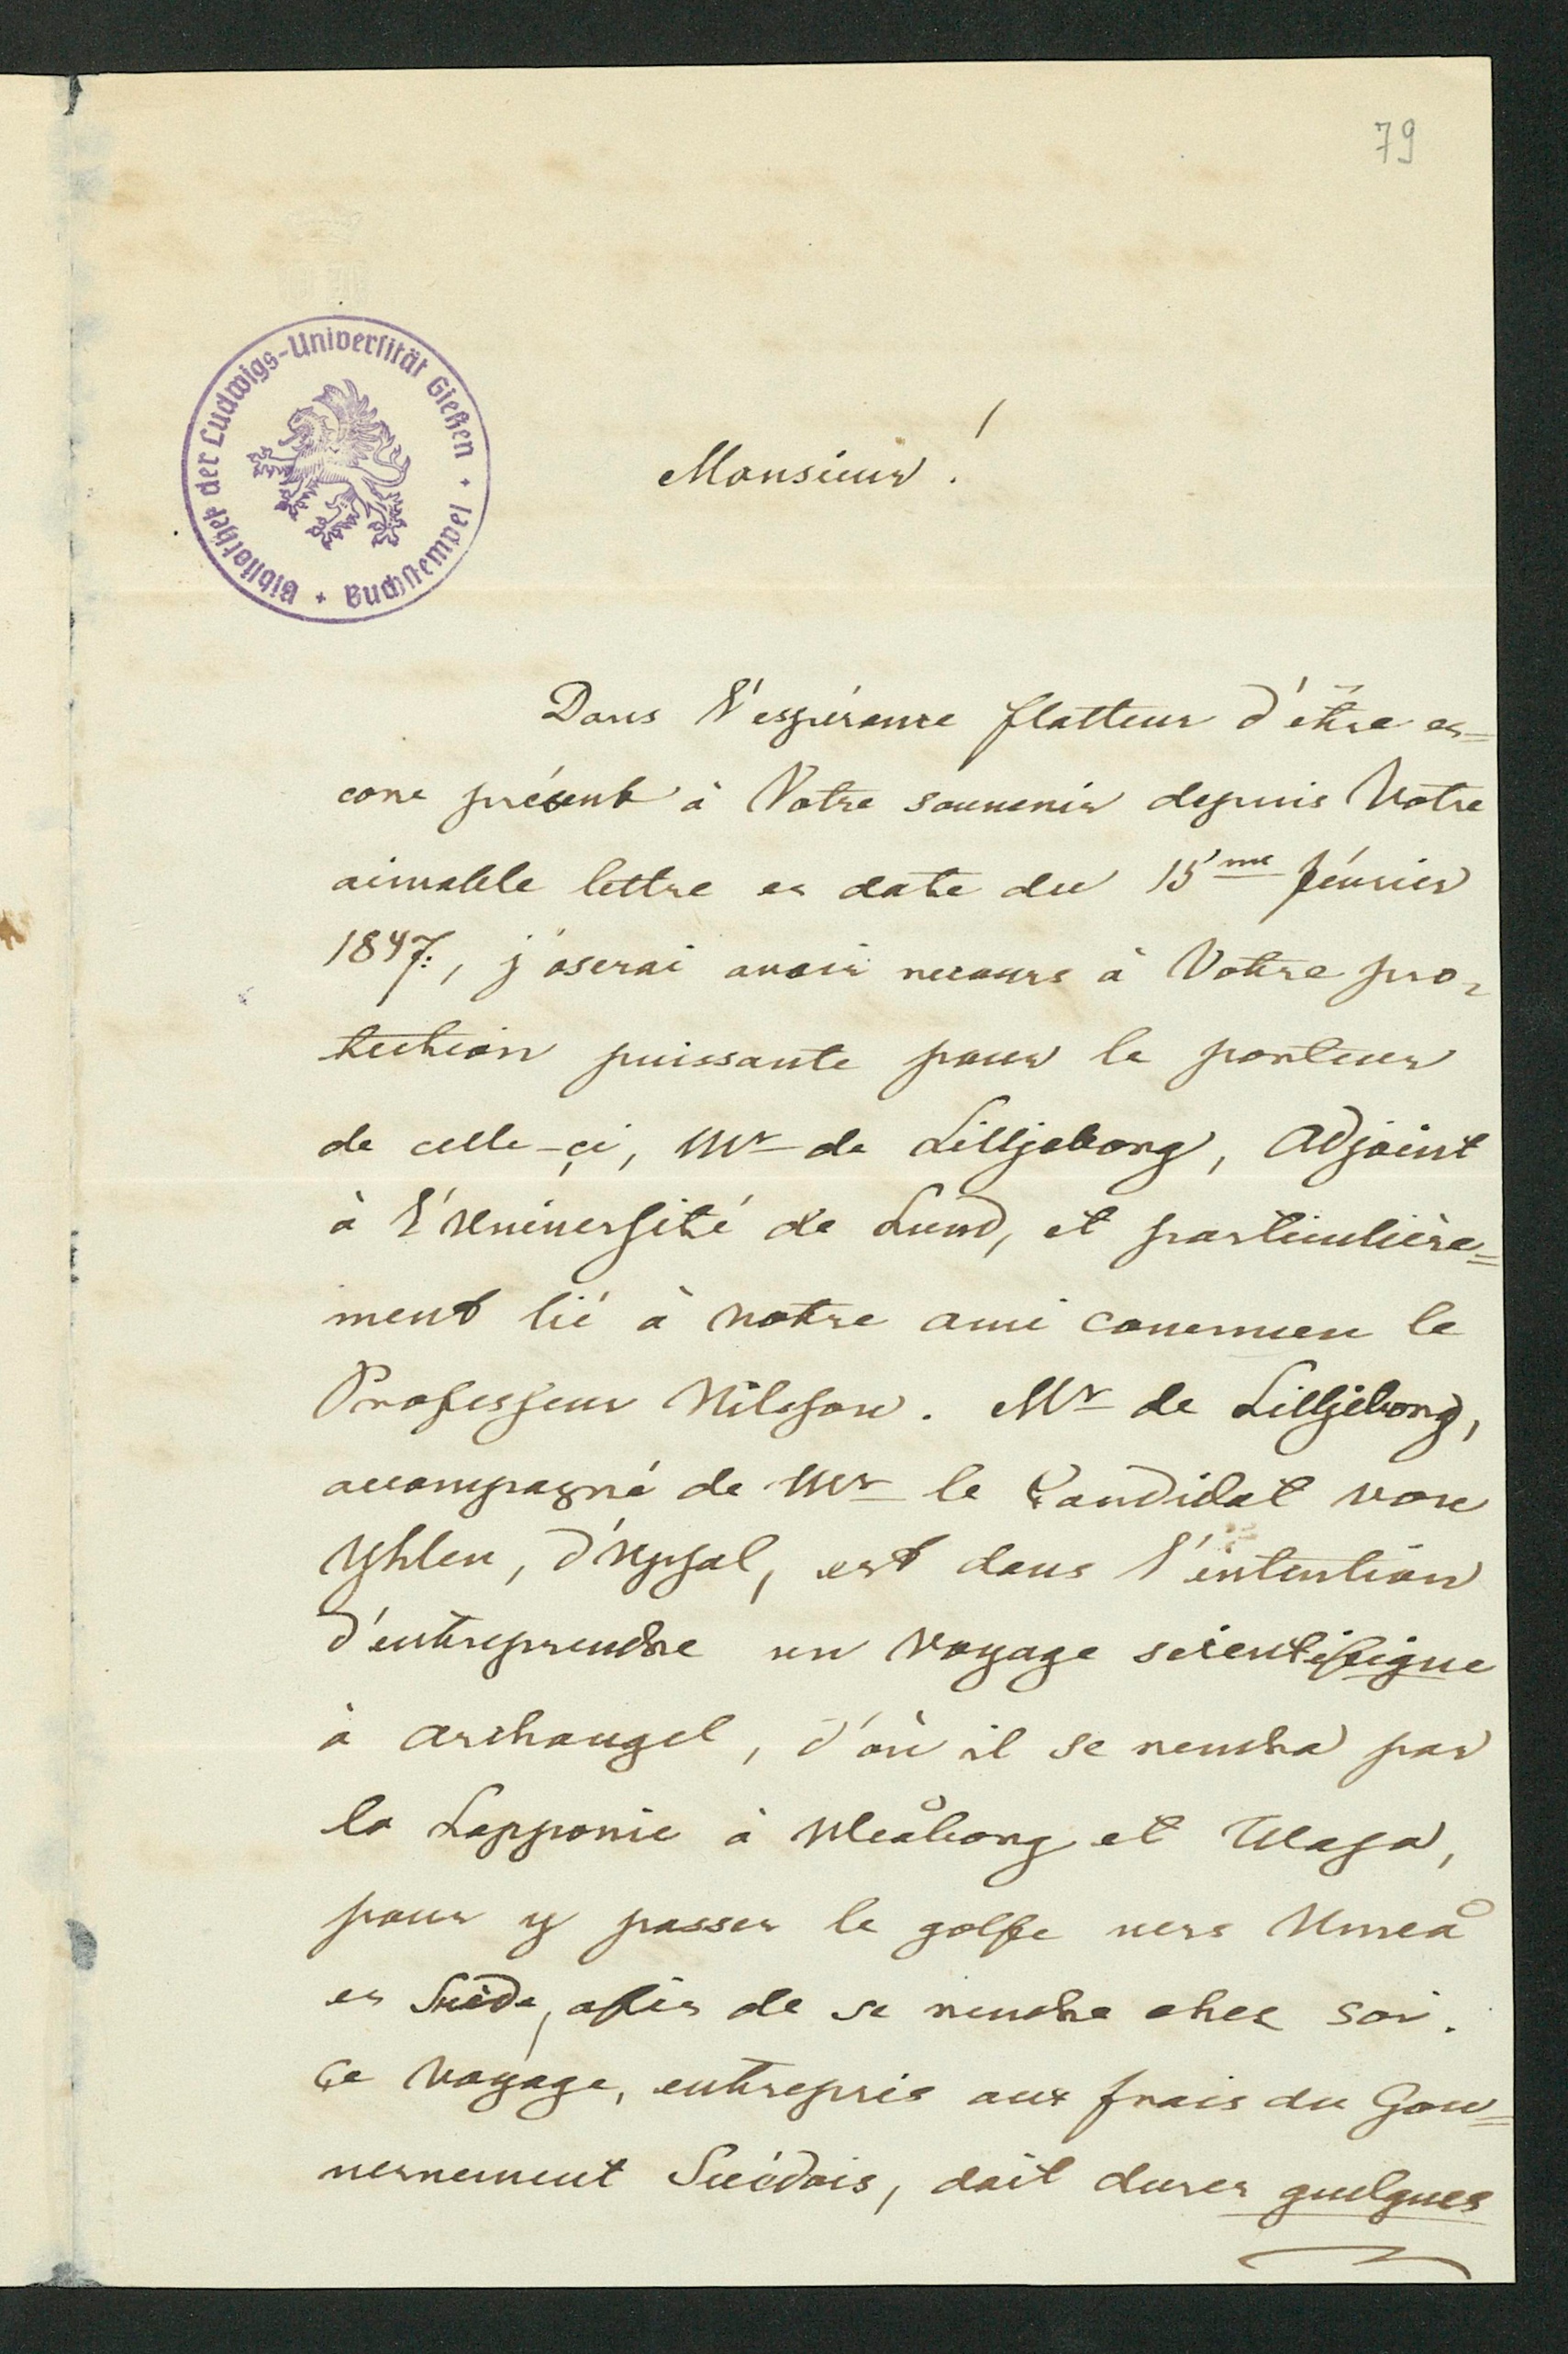 79
Bibliothek der Ludwigs-Universität Gießen + Buchstempel +
Monsieur!
Dans l'espérance flatteur d'être en=
core présent à Votre souvenir depuis Votre
aimable lettre en date du 15me février
1847:, j'oserai avoir recours à Votre pro=
tection puissante pour le porteur
de celle-çi, Mr de Lilljeborg, Adjoint
à l'Université de Lund, et particulière=
ment lié à notre ami commun le
Professeur Nilsson. Mr de Lilljeborg,
accompagné de Mr le Candidat von
Yhlen, d'Upsal, est dans l'intention
d'entreprendre un voyage scientifique
à Archangel, d'où il se rendra par
la Lapponie à Uleåborg et Wasa,
pour y passer le golfe vers Umeå
en Suède, afin de se rendre chez soi.
Çe voyage, entrepris aux frais du Gou=
vernement Suédois, doit durer quelques